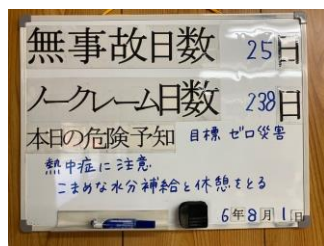 無事故日数 25日
ノークレーム日数 238日
本日の危険予知 目標 ゼロ災害
熱中症に注意
こまめな水分補給と休憩をとる
6年8月1日